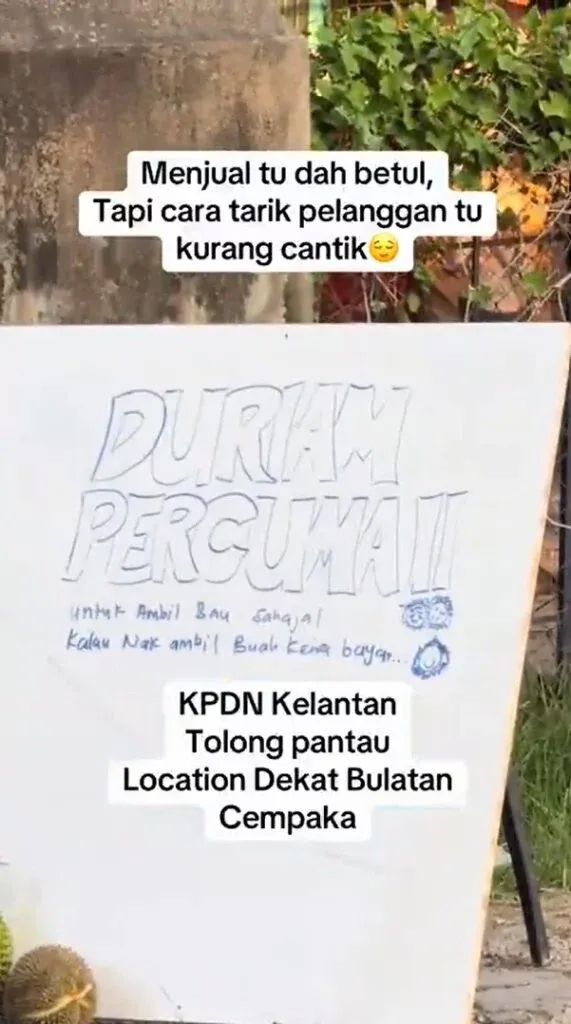 Menjual tu dah betul,
Tapi cara tarik pelanggan tu
kurang cantik😌
DURIAN
PERCUMA!!
untuk Ambil Bau Sahaja!
Kalau Nak ambil Buah Kena bayar...
KPDN Kelantan
Tolong pantau
Location Dekat Bulatan
Cempaka